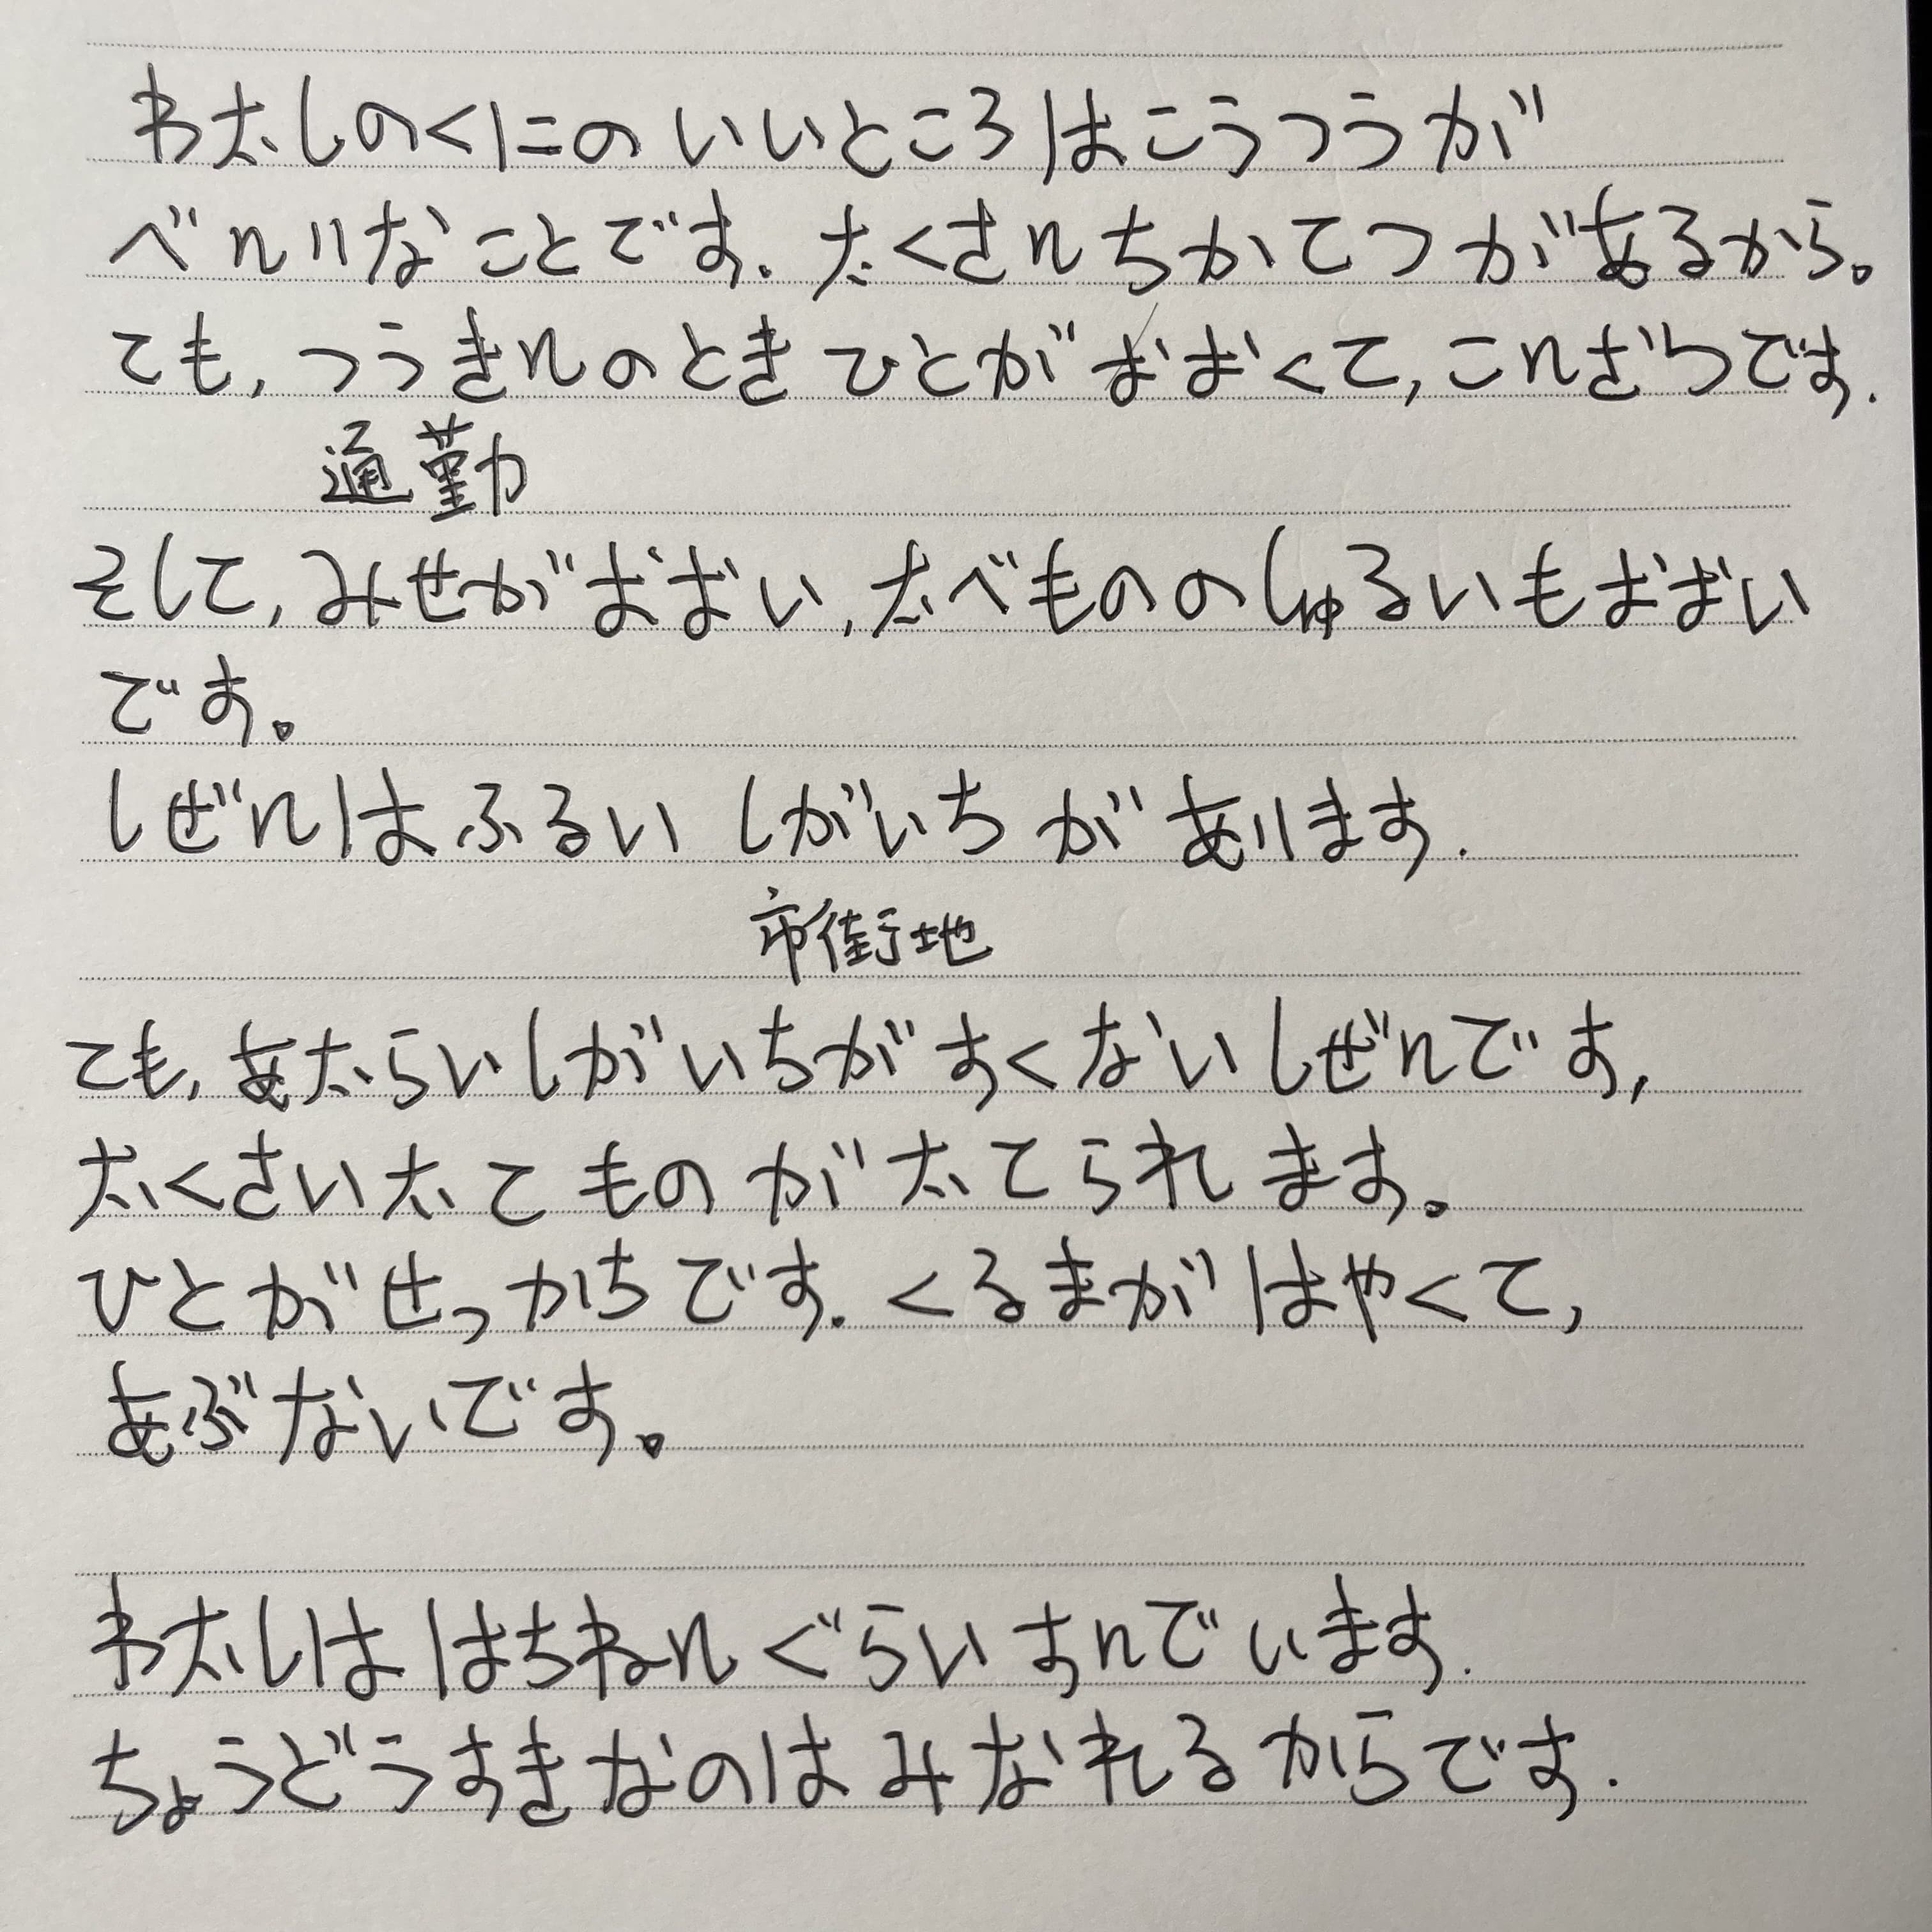 わたしのくにのいいところはこうつうが
べんりなことです.たくさんちかてつがあるから。
ても,つうきんのときひとがおおくて,こんざつです.
通勤
そして,みせがおおい,たべもののしゅるいもおおい
です。
しぜんはふるいしがいちがあります.
市街地
ても,あたらいしがいちがすくないしぜんです,
たくさいたてものがたてられます。
ひとがせっかちです.くるまがはやくて,
あぶないです。
わたしははちねんぐらいすんでいます.
ちょうどうすきなのはみなれるからです.